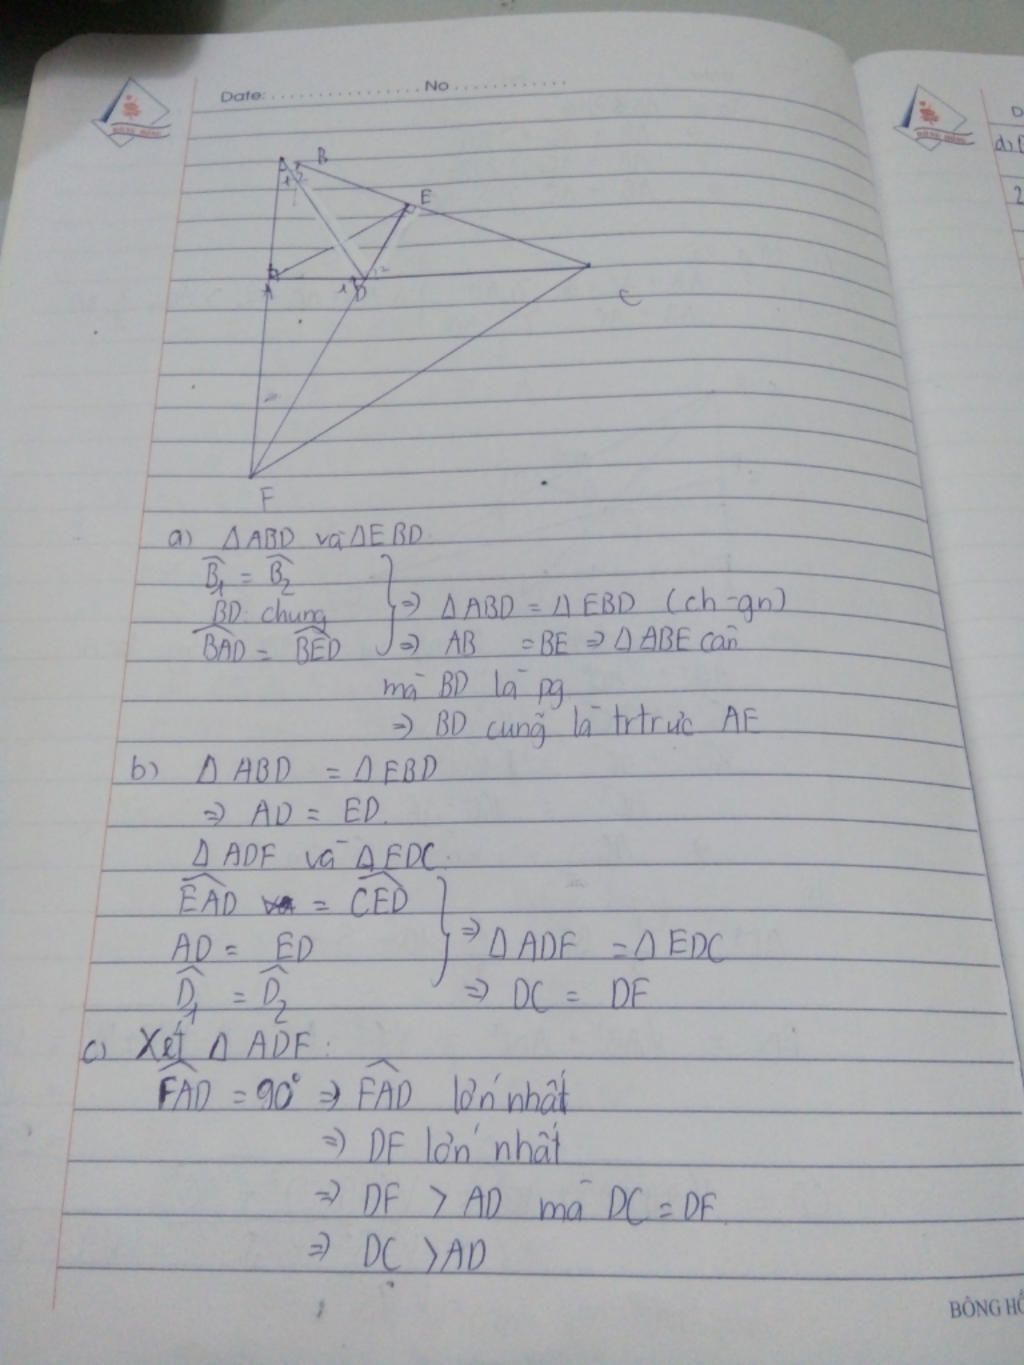 Date: ................ No ............
B
1 2
E
A
1 D 2
C
F
D
d)
2
a) ΔABD và ΔEBD.
B̂₁ = B̂₂
BD: chung } ⇒ ΔABD = ΔEBD (ch-gn)
BAD = BED ⇒ AB = BE ⇒ ΔABE cân
mà BD là pg
⇒ BD cũng là trtrực AE
b) ΔABD = ΔEBD
⇒ AD = ED.
ΔADF và ΔEDC.
EAD = CED
AD = ED } ⇒ ΔADF = ΔEDC
D̂₁ = D̂₂ ⇒ DC = DF
c) Xét ΔADF:
FAD = 90° ⇒ FAD lớn nhất
⇒ DF lớn nhất
⇒ DF > AD mà DC = DF
⇒ DC > AD
BÔNG HỒ